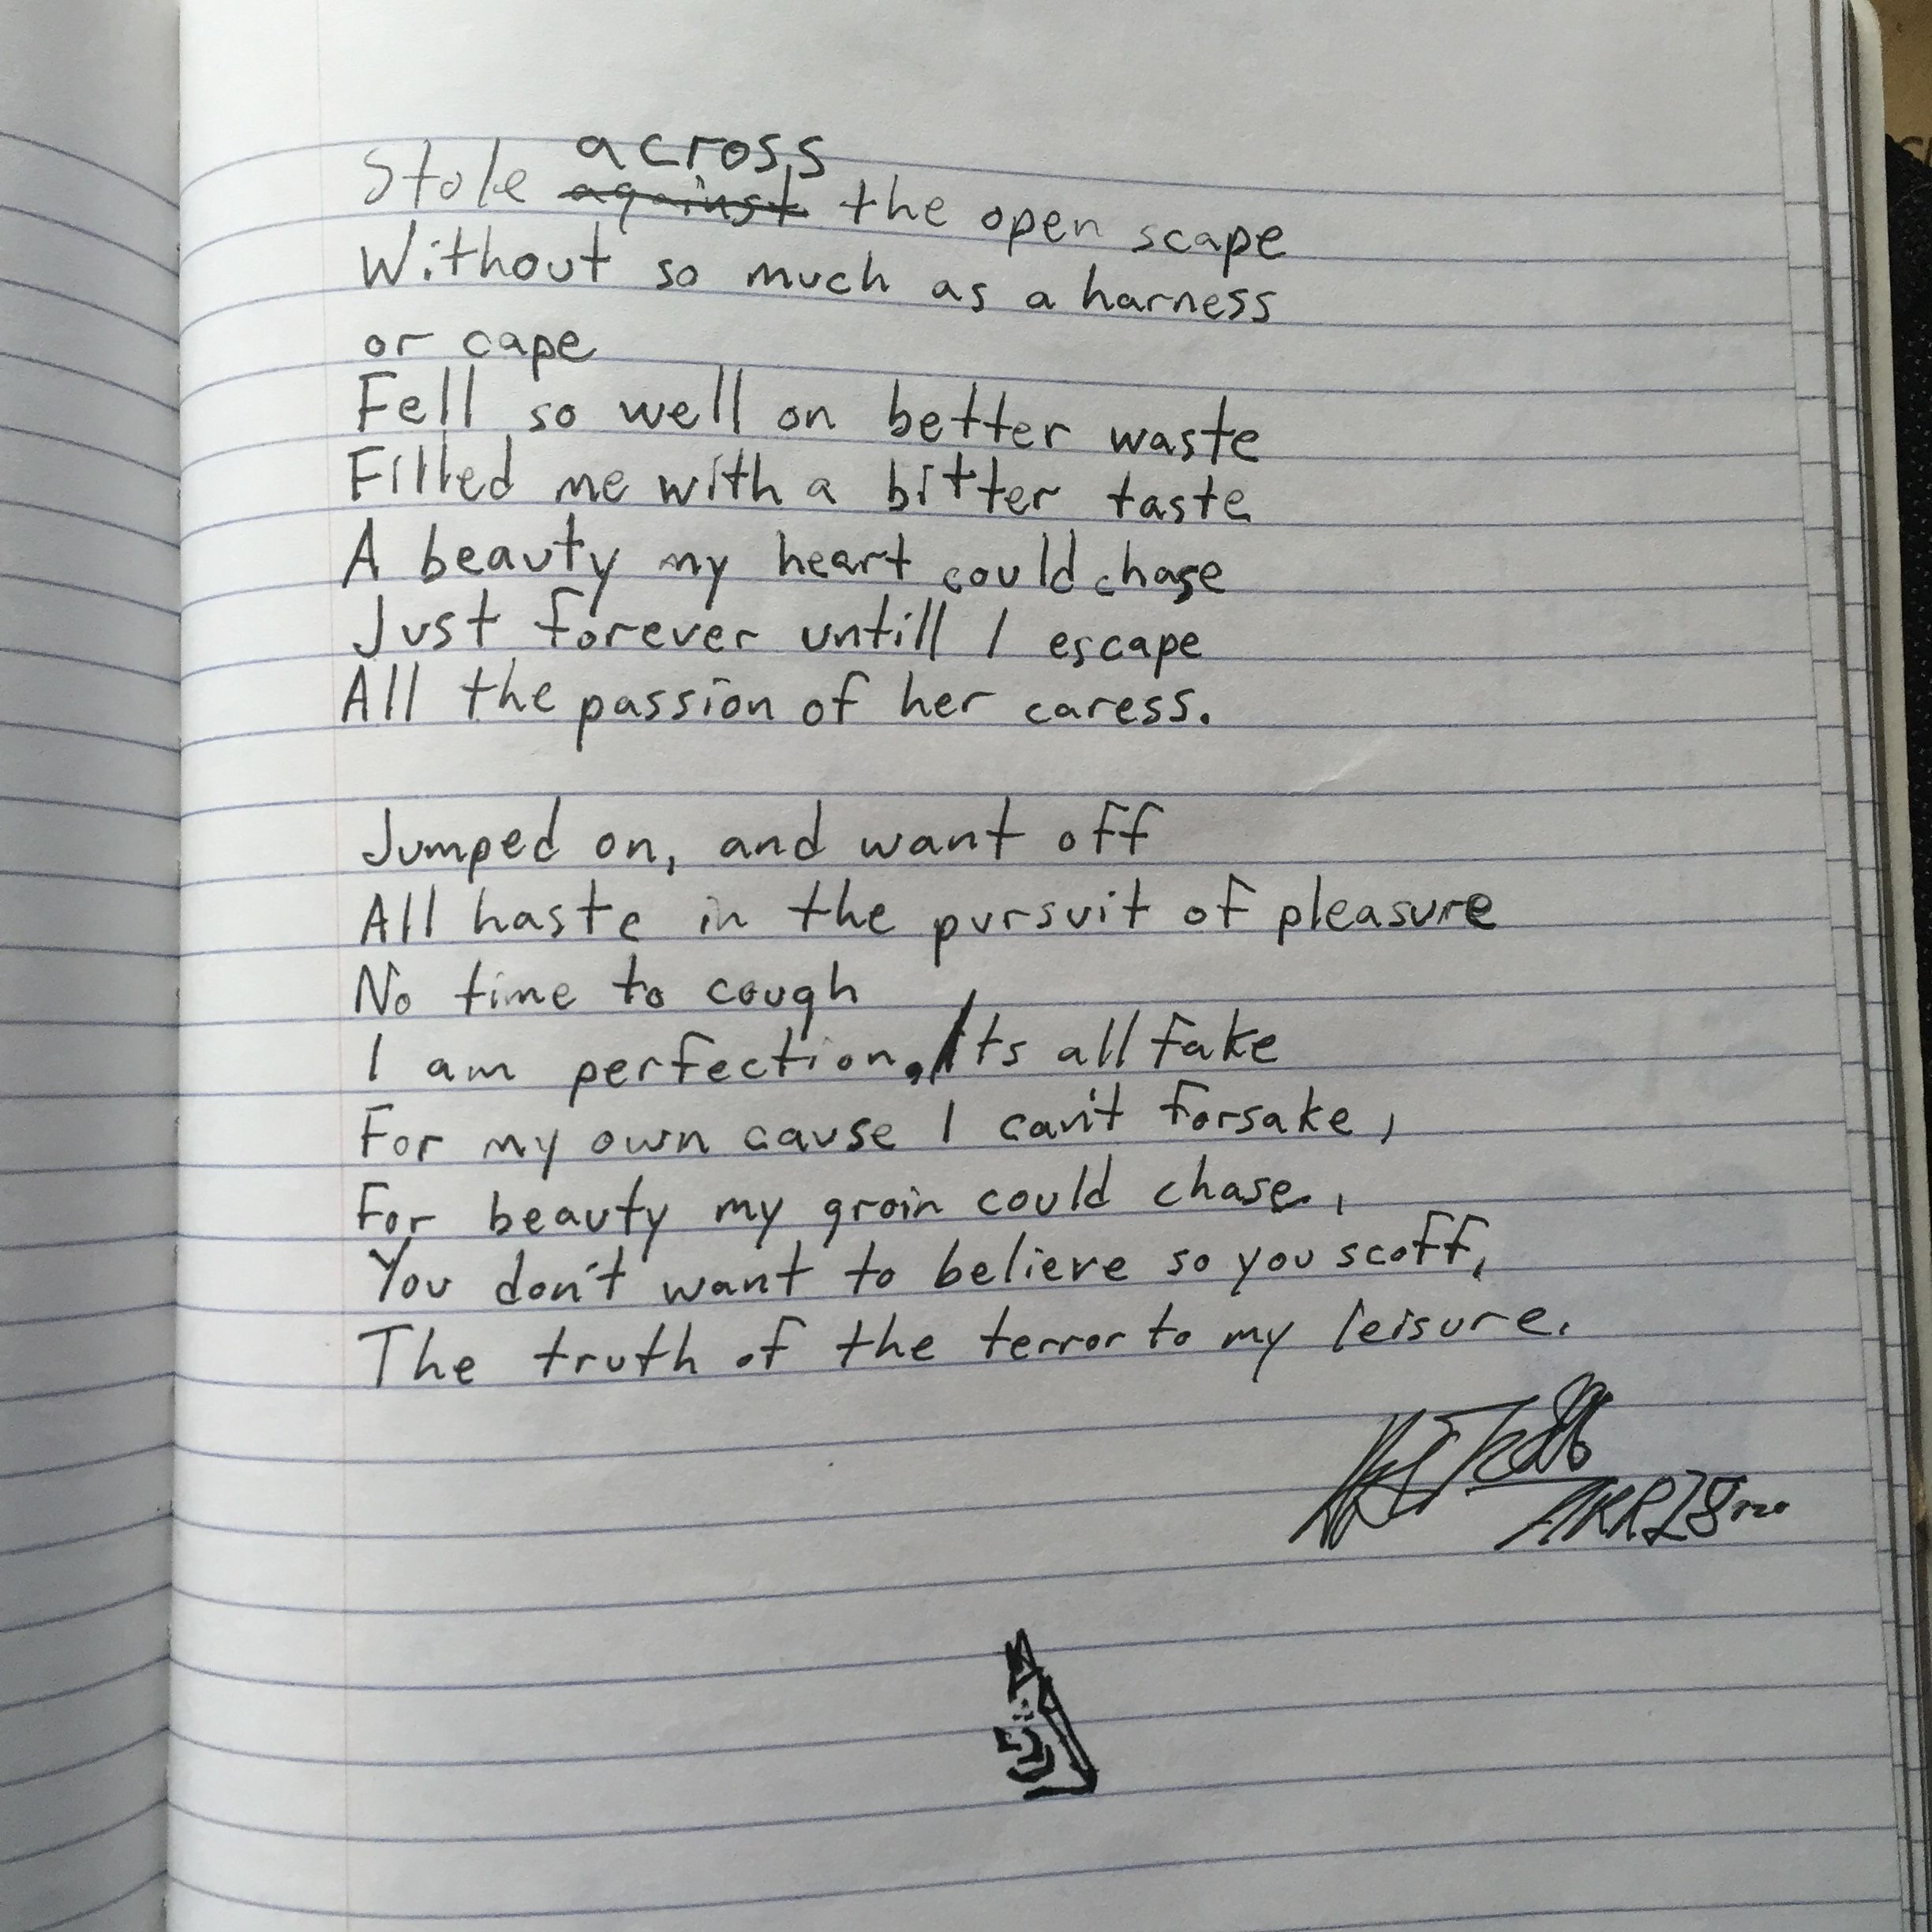 Stole across against the open scape
Without so much as a harness
or cape
Fell so well on better waste
Filled me with a bitter taste
A beauty my heart could chase
Just forever untill I escape
All the passion of her caress.
Jumped on, and want off
All haste in the pursuit of pleasure
No time to cough
I am perfection. Its all fake
For my own cause I can't forsake,
For beauty my groin could chase,
You don't want to believe so you scoff,
The truth of the terror to my leisure.